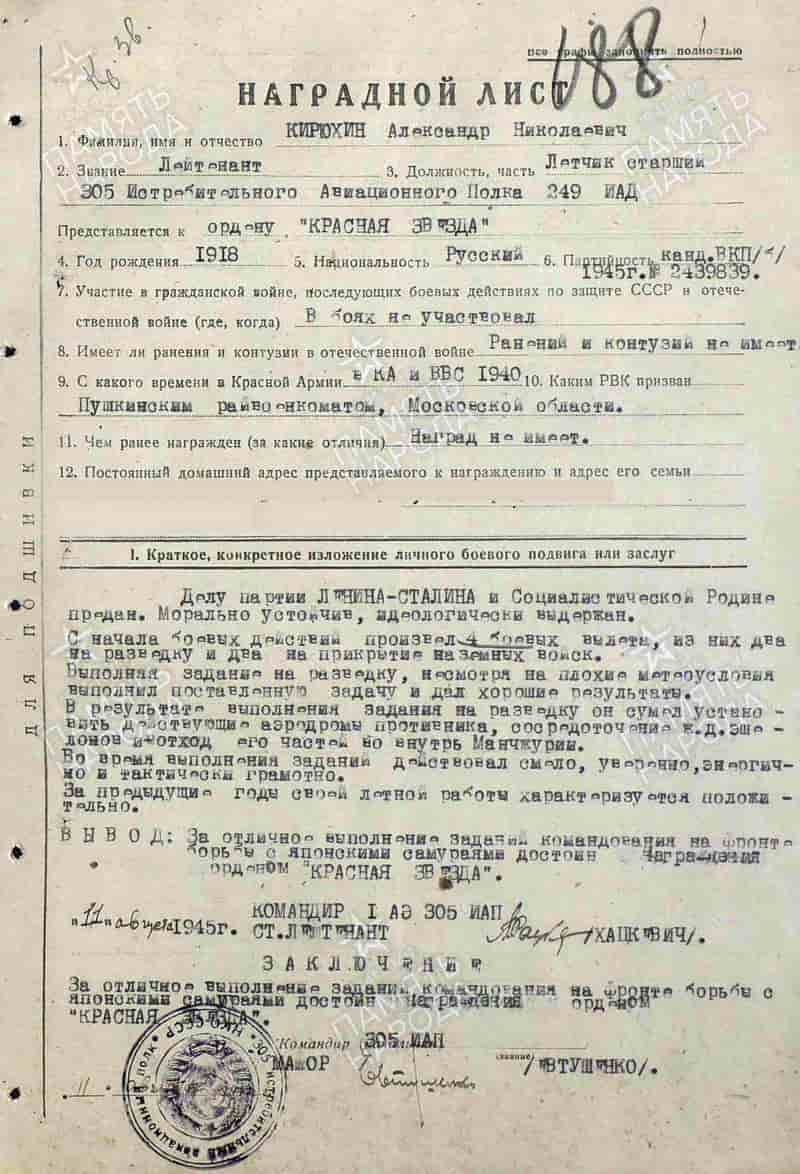 Кв. Зв.
188
все графы заполнять полностью
НАГРАДНОЙ ЛИСТ
1. Фамилия, имя и отчество КИРЮХИН Александр Николаевич
2. Звание Лейтенант 3. Должность, часть Летчик старший
305 Истребительного Авиационного Полка 249 ИАД
Представляется к ордену "КРАСНАЯ ЗВЕЗДА"
4. Год рождения 1918 5. Национальность Русский 6. Партийность канд.ВКП/б/
1945г.№ 2439839.
7. Участие в гражданской войне, последующих боевых действиях по защите СССР в отече-
ственной войне (где, когда) В боях не участвовал
8. Имеет ли ранения и контузии в отечественной войне Ранений и контузий не имеет.
9. С какого времени в Красной Армии в КА и ВВС 1940 10. Каким РВК призван
Пушкинским райвоенкоматом, Московской области.
11. Чем ранее награжден (за какие отличия) Наград не имеет.
12. Постоянный домашний адрес представляемого к награждению и адрес его семьи
ДЛЯ ПОДШИВКИ
1. Краткое, конкретное изложение личного боевого подвига или заслуг
Делу партии ЛЕНИНА-СТАЛИНА и Социалистической Родине
предан. Морально устойчив, идеологически выдержан.
С начала боевых действий произвел 4 боевых вылета, из них два
на разведку и два на прикрытие наземных войск.
Выполняя задание на разведку, несмотря на плохие метеоусловия
выполнил поставленную задачу и дал хорошие результаты.
В результате выполнения задания на разведку он сумел устано -
вить действующие аэродромы противника, сосредоточение ж.д.эше -
лонов и отход его частей во внутрь Манчжурии.
Во время выполнения заданий действовал смело, уверенно,энергич-
но и тактически грамотно.
За предыдущие годы своей летной работы характеризуется положи -
тельно.
ВЫВОД: За отличное выполнение заданий командования на фронте
борьбы с японскими самураями достоин награждения
орденом "КРАСНАЯ ЗВЕЗДА".
"11" августа 1945г. КОМАНДИР I АЭ 305 ИАП
СТ.ЛЕЙТЕНАНТ /ХАЦКЕВИЧ/.
ЗАКЛЮЧЕНИЕ
За отличное выполнение заданий командования на фронте борьбы с
японскими самураями достоин награждения орденом
"КРАСНАЯ ЗВЕЗДА".
Командир 305 ИАП
МАЙОР (звание) /ЕВТУШЕНКО/.
"11"
НКО СССР * 305 истребительный авиационный полк *
ПАМЯТЬ НАРОДА